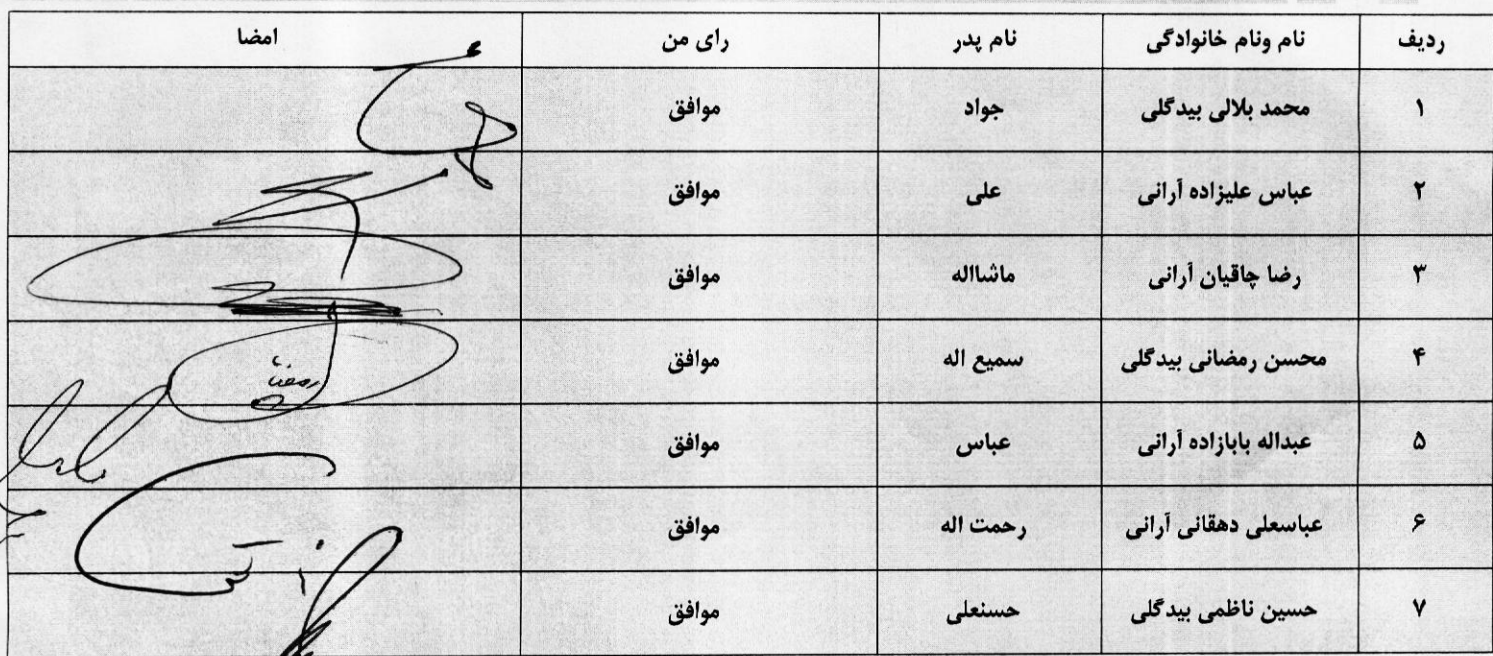 ردیف نام ونام خانوادگی نام پدر رای من امضا
۱ محمد بلالی بیدگلی جواد موافق
۲ عباس علیزاده آرانی علی موافق
۳ رضا چاقیان آرانی ماشااله موافق
۴ محسن رمضانی بیدگلی سمیع اله موافق
۵ عبداله بابازاده آرانی عباس موافق
۶ عباسعلی دهقانی آرانی رحمت اله موافق
۷ حسین ناظمی بیدگلی حسنعلی موافق